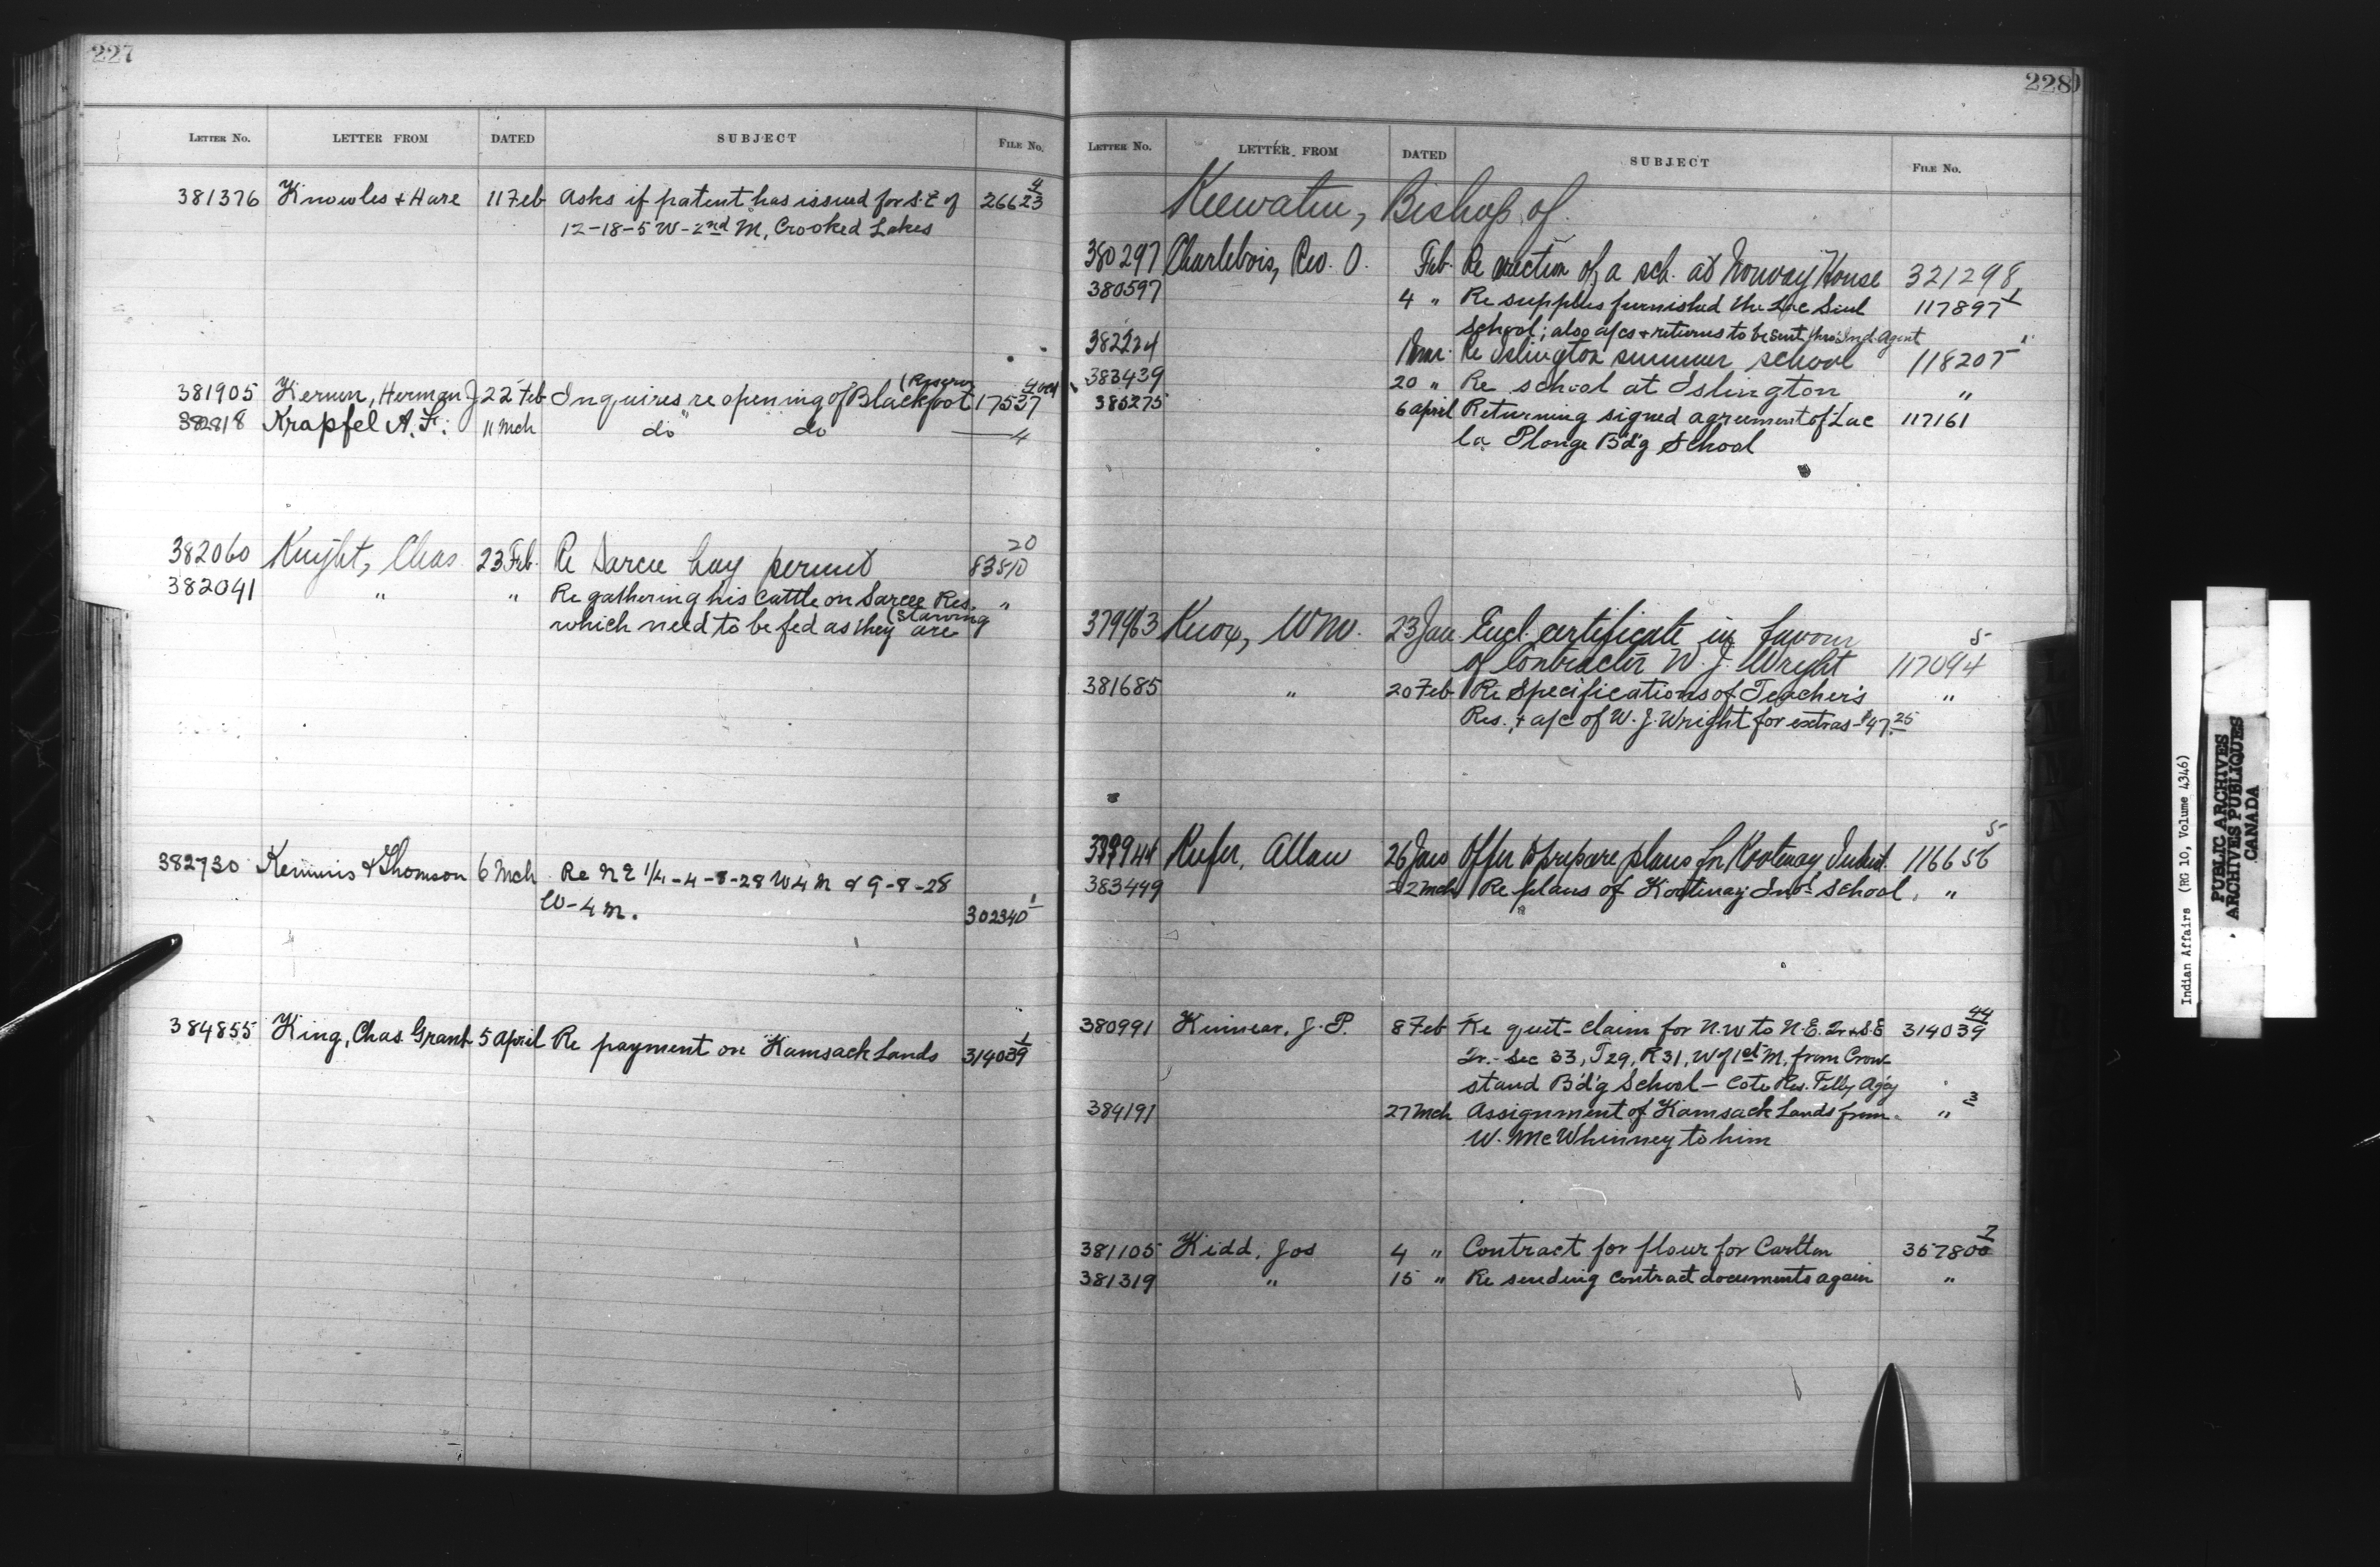 227
LETTER NO. LETTER FROM DATED SUBJECT FILE NO.
381376 Knowles & Hare 11 Feb Asks if patent has issued for S.E of 26623 4
12-18-5 W-2nd M, Crooked Lakes
381905 Kernen, Herman J 22 Feb Inquires re opening of Blackfoot (Reserve 17537
382818 Krapfel A. F. 11 Mch do do — 4
382060 Knight, Chas 23 Feb. Re Sarcee hay permit 83810 20
382041 " " Re gathering his cattle on Sarcee Res. "
which need to be fed as they are (starving
382730 Kemmis & Thomson 6 Mch Re N E 1/4 - 4-8-28 W 4 M & 9-8-28
W-4 M. 302340 1
384855 King, Chas. Grant 5 April Re payment on Kamsack Lands 314039 1
228
LETTER NO. LETTER FROM DATED SUBJECT FILE NO.
Keewatin, Bishop of
380297 Charlebois, Rev. O. Feb. Re erection of a sch. at Norway House 321298
380597 4 " Re supplies furnished the Lac Seul 117897 1
School; also a/cs & returns to be sent thro Ind. Agent
382224 Mar. Re Islington summer school 118205
383439 20 " Re school at Islington "
385275 6 April Returning signed agreement of Lac 117161
la Plonge B'd'g School
379963 Knox, Wm. 23 Jan Encl. certificate in favour
of Contractor W. J. Wright 117094 5
381685 " 20 Feb Re Specifications of Teacher's "
Res. & a/c of W. J. Wright for extras - $47.25
379944 Keefer, Allan 26 Jan Offer to prepare plans for Kootenay Indust. 116656 5
383449 22 Mch Re plans of Kootenay Ind'l School "
380991 Kinnear, J. P. 8 Feb Re quit-claim for N.W to N.E. Qr & S.E 314039 44
Qr. - Sec 33, T 29, R 31, W of 1st M, from Crow-
stand B'd'g School — Cote Res. Pelly Ag'cy
384191 27 Mch Assignment of Kamsack Lands from " 3
W. McWhinney to him
381105 Kidd, Jos 4 " Contract for flour for Carlton 357800 7
381319 " 15 " Re sending contract documents again "
Indian Affairs (RG 10, Volume 4346)
PUBLIC ARCHIVES
ARCHIVES PUBLIQUES
CANADA